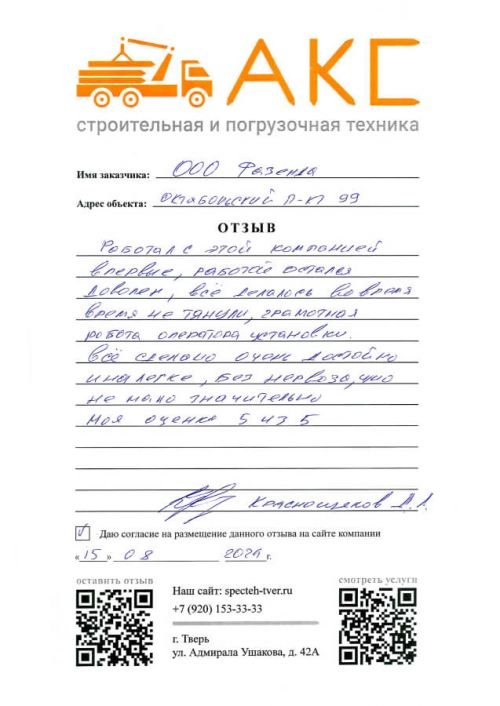 АКС
строительная и погрузочная техника
Имя заказчика: ООО Фазенда
Адрес объекта: Октябрьский П-КТ 99
ОТЗЫВ
Работал с этой компанией
впервые, работой остался
доволен, всё делалось во время
время не тянули, грамотная
работа оператора установки.
всё сделано очень достойно
и налегке, без нервоза, что
не мало значительно
Моя оценка 5 из 5
Краснощеков А.А.
Даю согласие на размещение данного отзыва на сайте компании
«15» 08 2024г.
оставить отзыв
смотреть услуги
Наш сайт: specteh-tver.ru
+7 (920) 153-33-33
г. Тверь
ул. Адмирала Ушакова, д. 42А